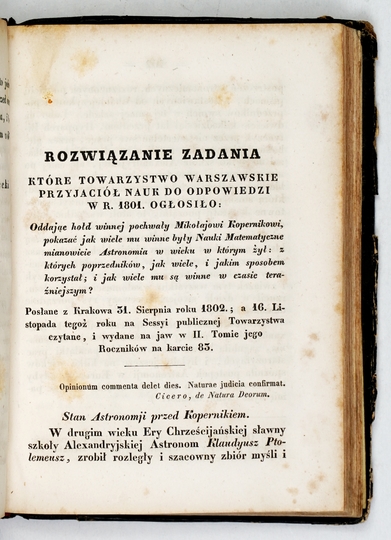 ROZWIĄZANIE ZADANIA
KTÓRE TOWARZYSTWO WARSZAWSKIE
PRZYJACIÓŁ NAUK DO ODPOWIEDZI
W R. 1801. OGŁOSIŁO:
Oddając hołd winnej pochwały Mikołajowi Kopernikowi,
pokazać jak wiele mu winne były Nauki Matematyczne
mianowicie Astronomia w wieku w którym żył: z
których poprzedników, jak wiele, i jakim sposobem
korzystał; i jak wiele mu są winne w czasie tera-
źniejszym?
Posłane z Krakowa 31. Sierpnia roku 1802.; a 16. Li-
stopada tegoż roku na Sessyi publicznej Towarzystwa
czytane, i wydane na jaw w II. Tomie jego
Roczników na karcie 83.
Opinionum commenta delet dies. Naturae judicia confirmat.
Cicero, de Natura Deorum.
Stan Astronomji przed Kopernikiem.
W drugim wieku Ery Chrześcijańskiej sławny
szkoły Alexandryjskiej Astronom Klaudyusz Pto-
lemeusz, zrobił rozległy i szacowny zbiór myśli i